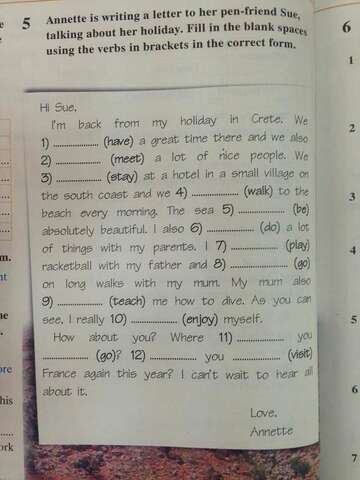 5 Annette is writing a letter to her pen-friend Sue,
talking about her holiday. Fill in the blank spaces
using the verbs in brackets in the correct form.
Hi Sue,
I'm back from my holiday in Crete. We
1) .................. (have) a great time there and we also
2) .................. (meet) a lot of nice people. We
3) .................. (stay) at a hotel in a small village on
the south coast and we 4) .................. (walk) to the
beach every morning. The sea 5) .................. (be)
absolutely beautiful. I also 6) .................. (do) a lot
of things with my parents. I 7) .................. (play)
racketball with my father and 8) .................. (go)
on long walks with my mum. My mum also
9) .................. (teach) me how to dive. As you can
see, I really 10) .................. (enjoy) myself.
How about you? Where 11) .................. you
.................. (go)? 12) .................. you .................. (visit)
France again this year? I can't wait to hear all
about it.
Love,
Annette
6
1
2
3
4
5
6
7
m.
nt
ne
ore
his
ork